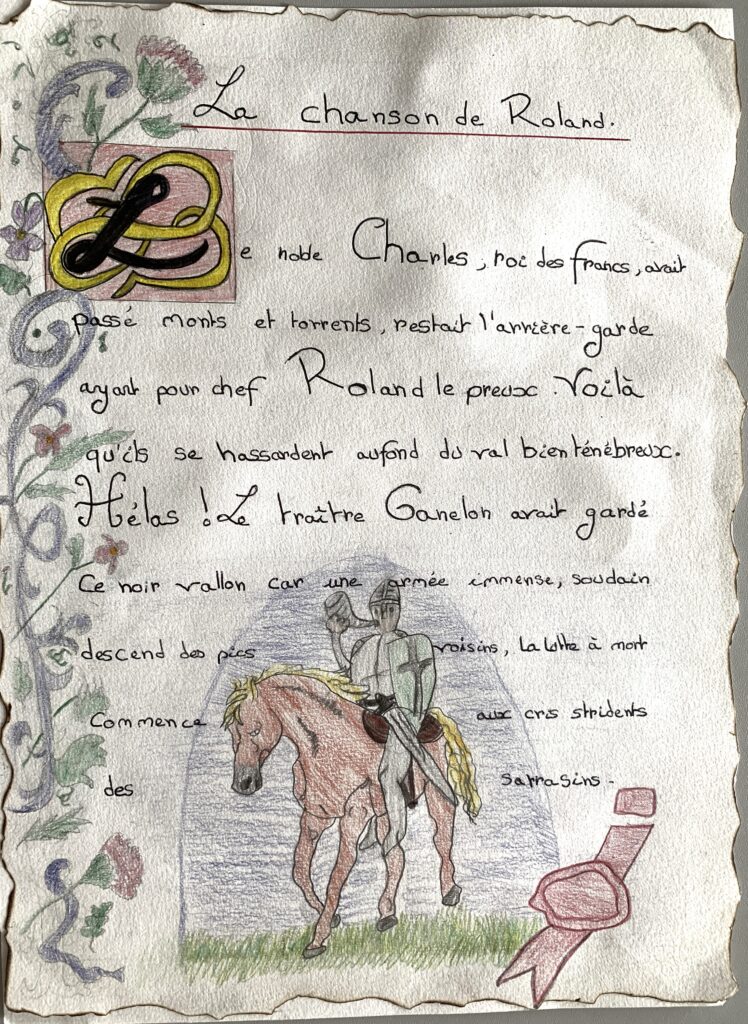 La chanson de Roland.
Le noble Charles, roi des francs, avait
passé monts et torrents, restait l'arrière-garde
ayant pour chef Roland le preux. Voilà
qu'ils se hassardent aufond du val bien ténébreux.
Hélas ! Le traître Ganelon avait gardé
Ce noir vallon car une armée immense, soudain
descend des pics voisins, La lutte à mort
Commence aux cris stridents
des sarrasins.